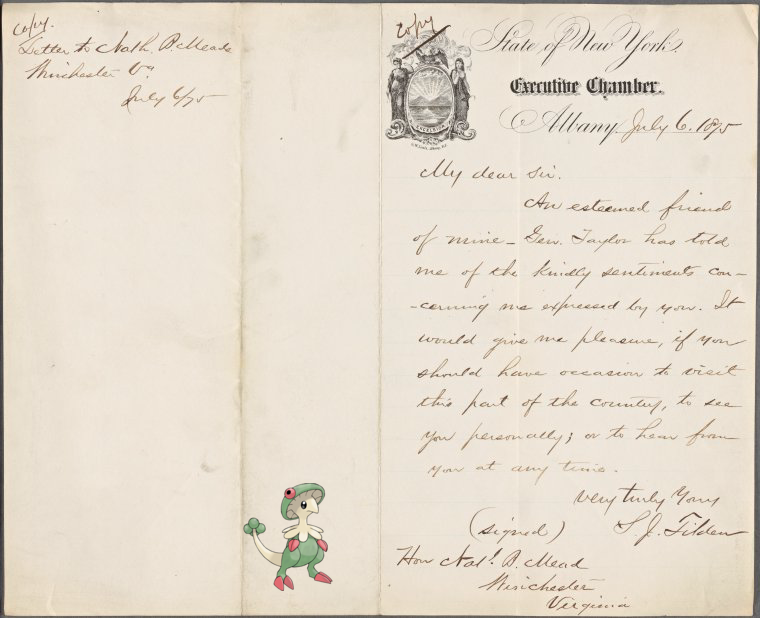 Copy.
Letter to Nath. P. Meade
Winchester Va
July 6/75
Copy
State of New York.
Executive Chamber.
EXCELSIOR
Albany, July 6. 1875
My dear Sir.
An esteemed friend
of mine - Gen. Taylor has told
me of the kindly sentiments con-
-cerning me expressed by you. It
would give me pleasure, if you
should have occasion to visit
this part of the country, to see
you personally; or to hear from
you at any time.
Very truly Yours
(signed) S. J. Tilden
Hon Natl. B. Mead
Winchester
Virginia